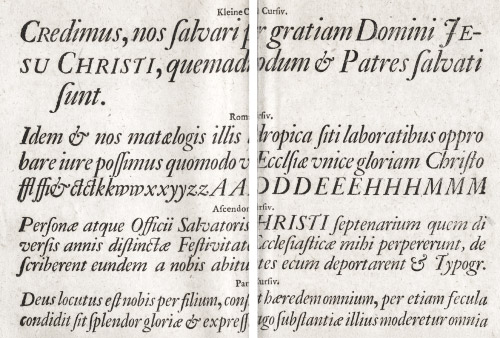 Kleine Cursiv.
CRedimus, nos ſalvari gratiam Domini JE-
SU CHRISTI, quemad odum & Patres ſalvati
ſunt.
Rom ſiv.
Idem & nos matælogis illis dropica ſiti laboratibus oppro
bare iure poſſimus quomodo v Eccſiæ vnice gloriam Chriſto
& kkwwxxyyzzAA DDDEEEHHHMMM
Aſcendon rſiv.
Perſonæ atque Officii Salvatoris HRISTI ſeptenarium quem di
verſis annis diſtinctæ Feſtivitate Eccleſiaſticæ mihi perpererunt, de
ſcriberent eundem a nobis abitu tes ecum deportarent & Typogr.
Curſiv.
Deus locutus eſt nobis per filium, conſ hæredem omnium, per etiam ſecula
condidit ſit ſplendor gloriæ & expreſſ ago ſubſtantiæ illius moderetur omnia